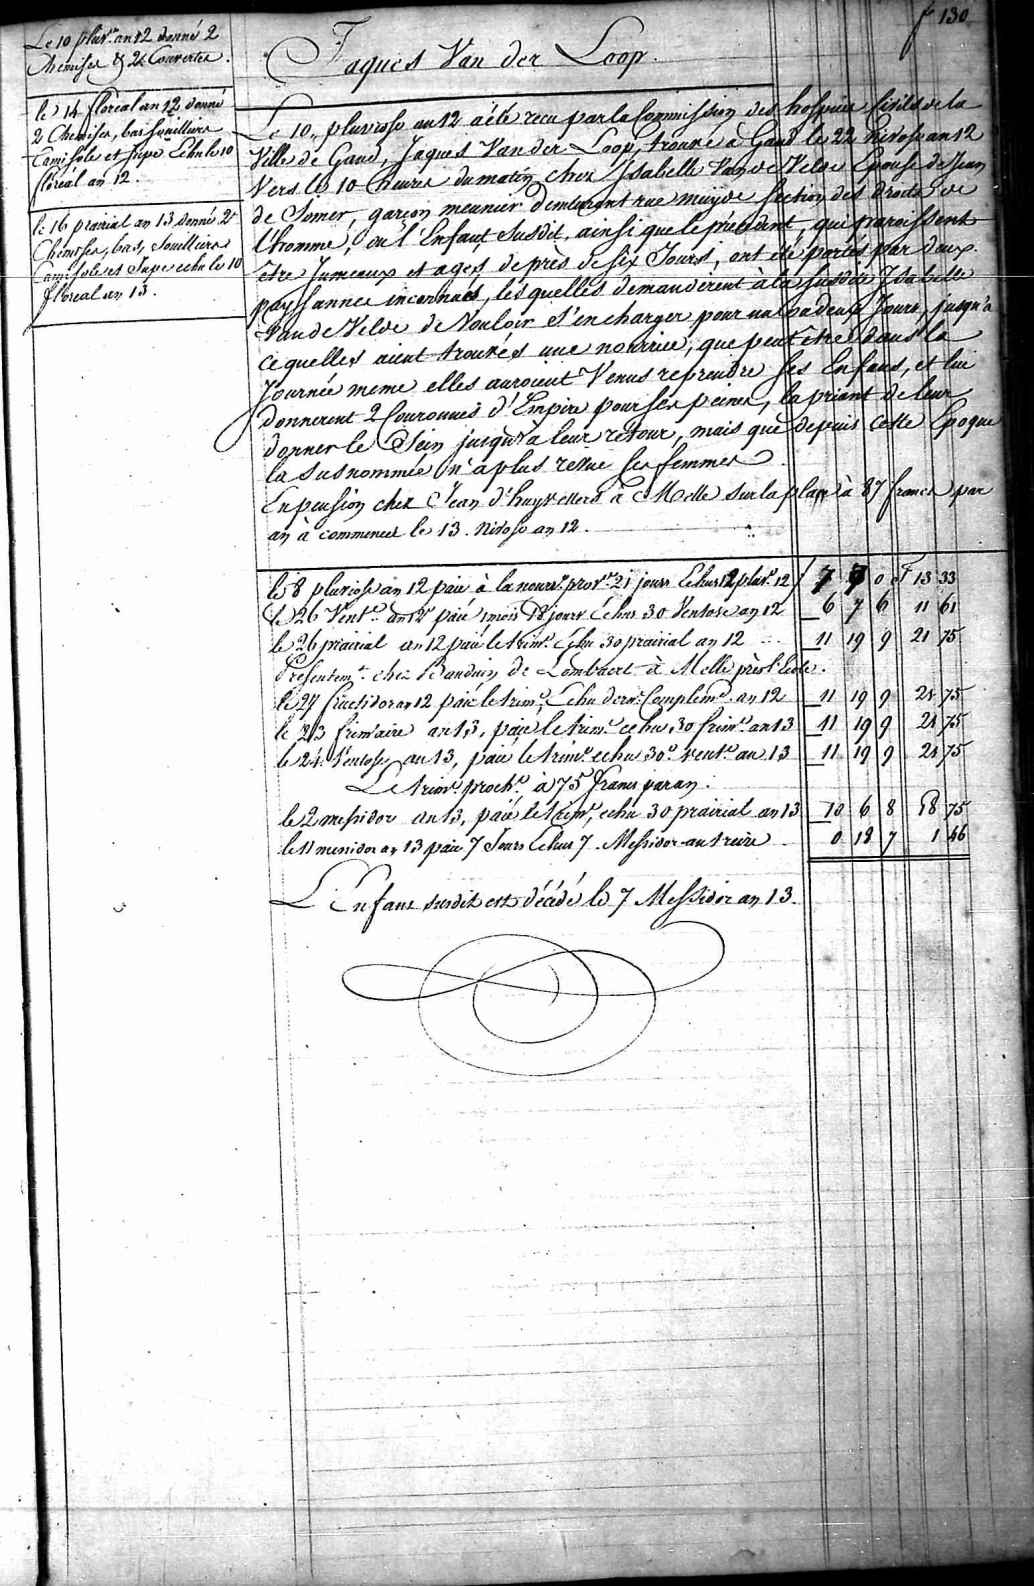 f 130
Le 10 pluv.e an 12 donné 2
Chemises & 2 Couvertes.
le 14 floréal an 12 donné
2 Chemises, bas souilliers
Camisole et Jupe Echu le 10
floréal an 12.
le 16 prairial an 13 donné 2
Chemises, bas, Souilliers
Camisole et Jupe echu le 10
floreal an 13.
Jaques Van der Loop.
Le 10,, pluviose an 12 a été recu par la Commission des hospices Civils de la
Ville de Gand, Jaques Van der Loop, trouvé a Gand le 22 Nivose an 12
Vers les 10 heures du matin chez Isabelle Van de Velde Epouse de Jean
de Somer, garçon meunier demeurant rue muyde section des droits de
l'homme, ou l'Enfant Susdit, ainsi que le précédent, que paroissent
être Jumeaux et agés de près de six Jours, ont été portés par deux
payssannes inconnues, lesquelles demandèrent à la susdite Isabelle
Van de Velde de Vouloir s'en charger pour un ou deux Jours, jusqu'à
ce quelles aient trouvés une nourrice, que peut être dans la
Journée meme elles auroient Venus reprendre ses Enfans, et lui
donnerent 2 Couronnes d'Empire pour ses peines, la priant de leur
donner le Sein jusqu'à leur retour, mais que depuis cette Epoque
la susnommée n'a plus revue ses femmes
En pension chez Jean d'huyvetters à Melle sur la place à 87 francs par
an à commencer le 13. Nivose an 12.
le 8 pluviose an 12 paié à la nourr.e prov.re 21 jours Echus 12 pluv.e 12 7 7 0 F 13 33
le 26 Vent.e an 12 paié 1 mois 18 jours Echus 30 Ventose an 12 6 7 6 11 61
le 26 prairial an 12 paié le trim.e Echu 30 prairial an 12 11 19 9 21 75
Présentem.t chez Bauduin de Lombaert à Melle près l'Ecole.
le 27 fructidor an 12 paié le trim.e Echu dern.r Complem.e an 12 11 19 9 21 75
le 23 frimaire an 13, paié le trim.e echu 30 frim.e an 13 11 19 9 21 75
le 24 Ventose an 13, paié le trim.e echu 30.e vent.e an 13 11 19 9 21 75
Le trim.e proch.e à 75 francs par an.
le 2 messidor an 13, paié le trim.e, echu 30 prairial an 13 10 6 8 18 75
le 11 messidor an 13 paié 7 Jours Echus 7 Messidor an treize 0 18 7 1 46
L'Enfant susdit est décédé le 7 Messidor an 13.